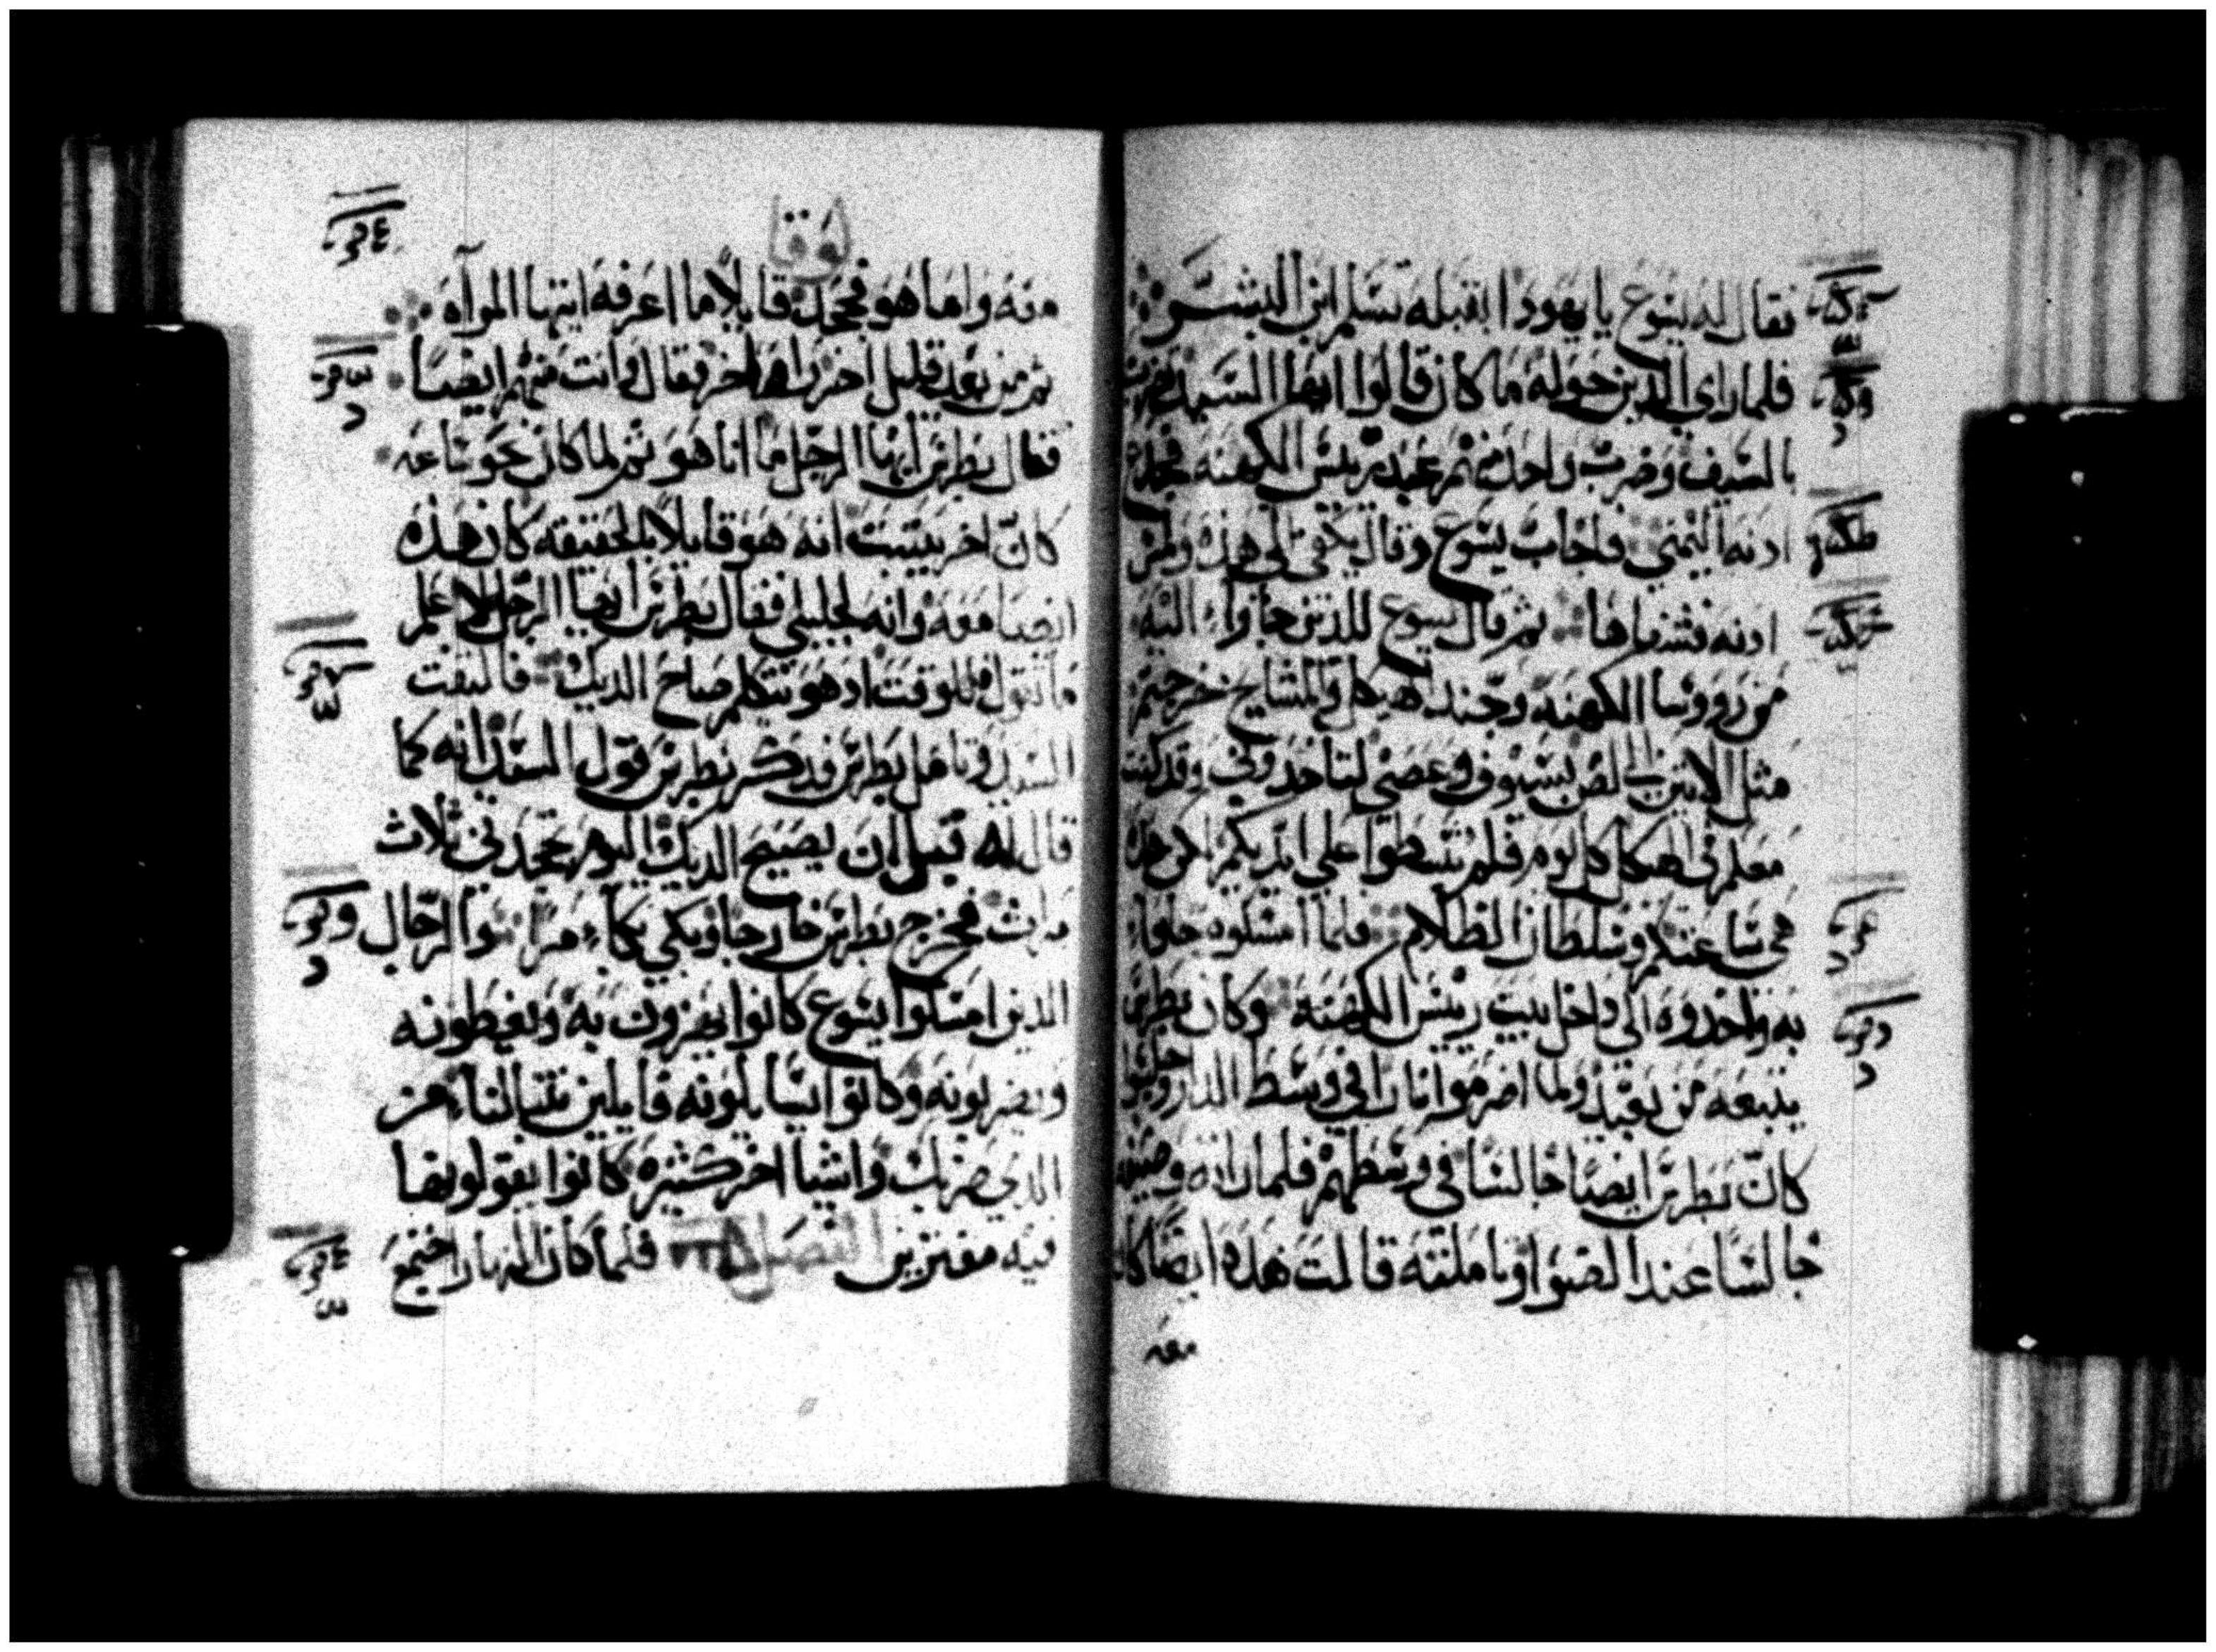 فقال له يسوع يا يهودا ابقبله تسلم ابن البشر
فلما راي الذين حوله ما كان قالوا ايها السيد نضرب
بالسيف وضرب واحد منهم عبد رييس الكهنه فجدع
ادنه اليمني فاجاب يسوع وقال يكفي الي هذه ولمس
ادنه فشفاها ثم قال يسوع للذين جاوا اليه
من رووسا الكهنه وجند الهيكل والمشايخ خرجتم
مثل الاتين الي لص بسيوف وعصي لتاخدوني وقد كنت
معكم في الهيكل كل يوم فلم تبسطوا علي ايديكم لكن هذه
هي ساعتكم وسلطان الظلام فلما امسكوه جاوا
به واخدوه الي داخل بيت رييس الكهنه وكان بطرس
يتبعه من بعيد ولما اضرموا نارا في وسط الدار وجلسوا
كان بطرس ايضا جالسا في وسطهم فلما راته وصيفه
جالسا عند الضوا وتاملته قالت هذا ايضا كان
معه
لوقا
معه واما هو فجحد قايلا ما اعرفه ايتها المراه
ثم من بعد قليل اخر راه اخر فقال وانت منهم ايضا
فقال بطرس ايها الرجل ما انا هو ثم لما كان نحو ساعه
كان اخر يتبت انه هو قايلا بالحقيقه كان هذه
ايضا معه وانه لجليلي فقال بطرس ايها الرجل لا اعلم
ما تقول وللوقت اد هو يتكلم صاح الديك فالتفت
السيد وتامل بطرس فدكر بطرس قول السيد انه كما
قال له قبل ان يصيح الديك اليوم تجحدني ثلاث
مراث فخرج بطرس خارجا وبكي بكاء مرا والرجال
الذين امسكوا يسوع كانوا يهزون به ويغطونه
ويضربونه وكانوا يسايلونه قايلين تنبا لنا من
الذي ضربك واشيا اخر كثيره كانوا يقولونها
فيه مفترين الفصل فلما كان النهار اجتمع